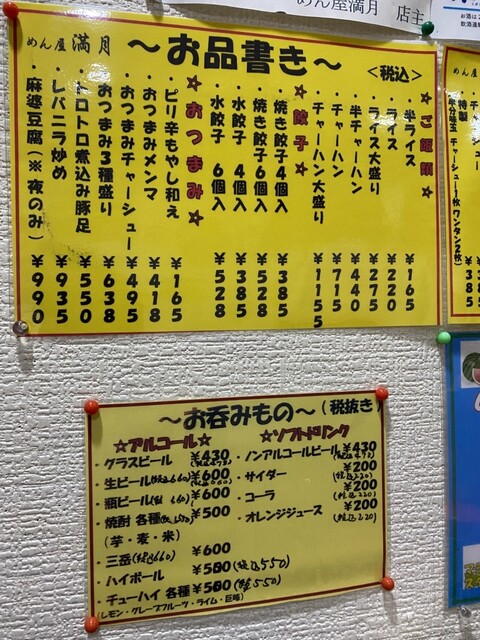 めん屋満月 店主
めん屋 満月 ～お品書き～ <税込>
☆ご飯類☆
・半ライス ¥165
・ライス ¥220
・ライス大盛り ¥275
・半チャーハン ¥440
・チャーハン ¥715
・チャーハン大盛り ¥1155
☆餃子☆
・焼き餃子4個入 ¥385
・焼き餃子6個入 ¥528
・水餃子 4個入 ¥385
・水餃子 6個入 ¥528
☆おつまみ☆
・ピリ辛もやし和え ¥165
・おつまみメンマ ¥418
・おつまみチャーシュー ¥495
・おつまみ3種盛り ¥638
・トロトロ煮込み豚足 ¥550
・レバニラ炒め ¥935
・麻婆豆腐(※夜のみ) ¥990
めん屋
特製
半分味玉 チャーシュー1枚 ワンタン2枚) ¥385
～お呑みもの～(税抜き)
☆アルコール☆
・グラスビール ¥430
・生ビール ¥600
・瓶ビール ¥600
・焼酎 各種 ¥500
(芋・麦・米)
・三岳 ¥600
・ハイボール ¥500(税込550)
・チューハイ 各種 ¥500(税込550)
(レモン・グレープフルーツ・ライム・巨峰)
☆ソフトドリンク
・ノンアルコールビール ¥430
・サイダー ¥200
(税込220)
・コーラ ¥200
(税込220)
・オレンジジュース ¥200
(税込220)